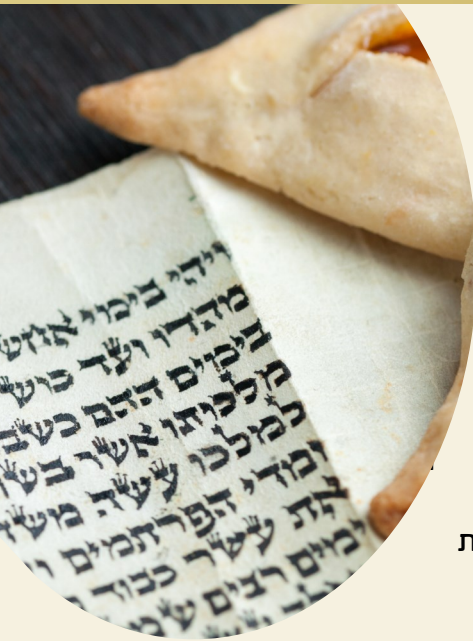 ויהי בימי אחש
מהדו ועד כוש
בימים ההם כשב
מלכותו אשר בשו
למלכו עשה מש
ומדי הפרתמים
את עשר כבוד
ימים רבים שמ
ת